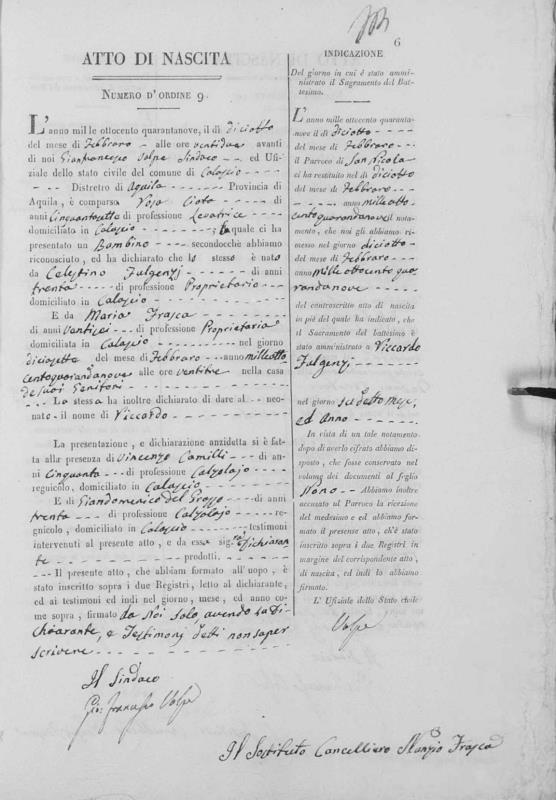 6
ATTO DI NASCITA
NUMERO D'ORDINE 9.
L'anno mille ottocento quarantanove, il dì diciotto
del mese di Febbraro - alle ore ventidue avanti
di noi Gianfrancesco Volpe Sindaco - - ed Ufi-
ziale dello stato civile del comune di Calascio - -
- - - - Distretto di Aquila - - - Provincia di
Aquila, è comparsa Rosa Ciota - - - di
anni Cinquantasette di professione Levatrice - - -
domiciliata in Calascio - - - ; la quale ci ha
presentato un Bambino - - - - secondocchè abbiamo
riconosciuto, ed ha dichiarato che lo stesso è nato
da Celestino Fulgenzj - - - - di anni
trenta - - - di professione Proprietario - - -
domiciliato in Calascio - - - - - -
E da Maria Frasca - - - - - -
di anni Ventisei - - - di professione Proprietaria
domiciliata in Calascio - - - nel giorno
diciasette - - del mese di Febbraro - - anno milleotto
centoquarandanove alle ore ventitre nella casa
de suoi Genitori - - - - - -
La stessa ha inoltre dichiarato di dare al - - neo-
nato - il nome di Riccardo - - - - - -
La presentazione, e dichiarazione anzidetta si è fat-
ta alla presenza di Vincenzo Camilli - - - di an-
ni Cinquanta - - - di professione Calzolajo - - -
regnicolo, domiciliato in Calascio - - - - -
E di Giandomenico del Grosso - - - - di anni
trenta - - - di professione Calzolajo - - - - re-
gnicolo, domiciliato in Calascio - - - testimoni
intervenuti al presente atto, e da essa sig.ra Dichiaran-
te - - - - - - prodotti. - - - - -
- - - Il presente atto, che abbiam formato all'uopo, è
stato inscritto sopra i due Registri, letto al dichiarante,
ed ai testimoni ed indi nel giorno, mese, ed anno co-
me sopra, firmato da Noi solo, avendo la Di-
chiarante, e Testimonj detti non saper
scrivere - - - - - -
Il Sindaco
Gio: Francesco Volpe
INDICAZIONE
Del giorno in cui è stato ammi-
nistrato il Sagramento del Bat-
tesimo.
L'anno mille ottocento quaranta-
nove il dì diciotto - - - -
del mese di Febbraro - - - -
il Parroco di San Nicola
ci ha restituito nel dì diciotto
del mese di Febbraro - - -
- - - - - anno milleotto
centoquarandanove il notamen-
to, che noi gli abbiamo ri-
messo nel giorno diciotto - -
del mese di Febbraro - - - -
anno mille ottocento qua
randanove - - - - - -
del controscritto atto di nascita
in piè del quale ha indicato, che
il Sacramento del battesimo è
stato amministrato a Riccardo
Fulgenzj - - - - -
nel giorno sudetto mese,
ed Anno - - - - -
In vista di un tale notamento
dopo di averlo cifrato abbiamo di-
sposto, che fosse conservato nel
volume dei documenti al foglio
Nono - - Abbiamo inoltre
accusato al Parroco la ricezione
del medesimo e ed abbiamo for-
mato il presente atto, ch'è stato
inscritto sopra i due Registri in
margine del corrispondente atto,
di nascita, ed indi lo abbiamo
firmato.
L' Ufiziale dello Stato civile
Volpe
Il Sostituto Cancelliero Nunzio Frasca